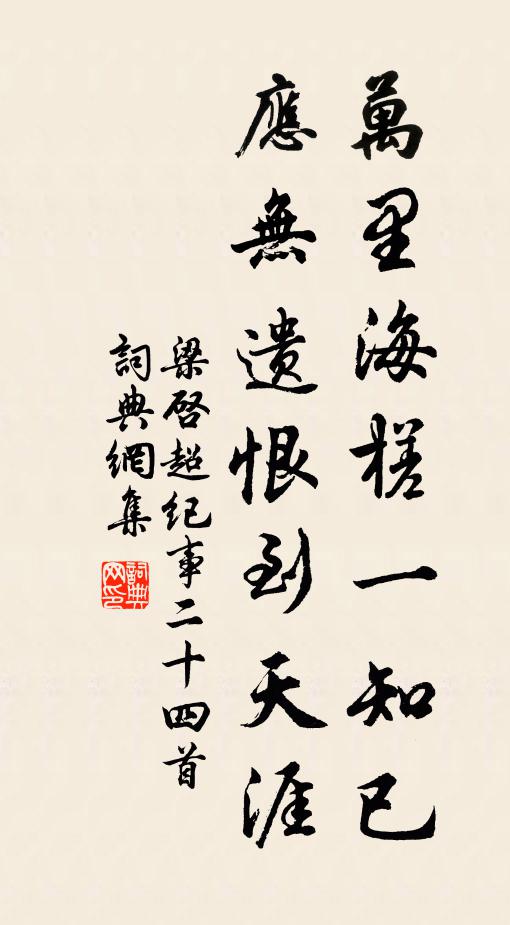 萬里海槎一知已
應無遺恨到天涯
梁啓超紀事二十四首
詞典網集
詞典网印